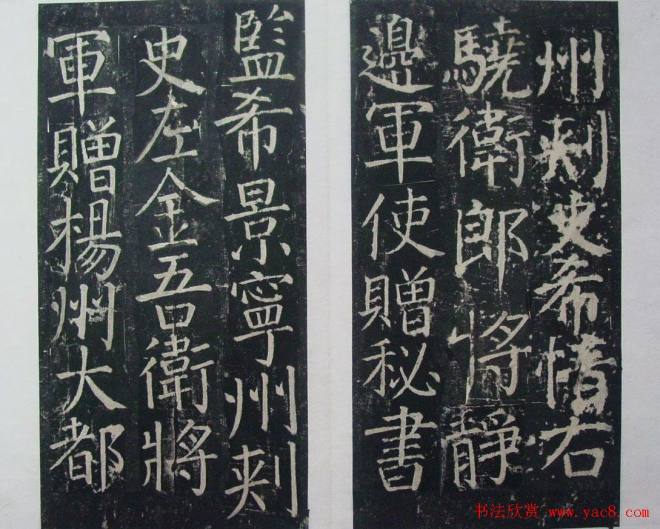 州刺史希愔右
驍衛郎將靜
邊軍使贈秘書
監希景寧州刺
史左金吾衛將
軍贈楊州大都
书法欣赏 www.yac8.com